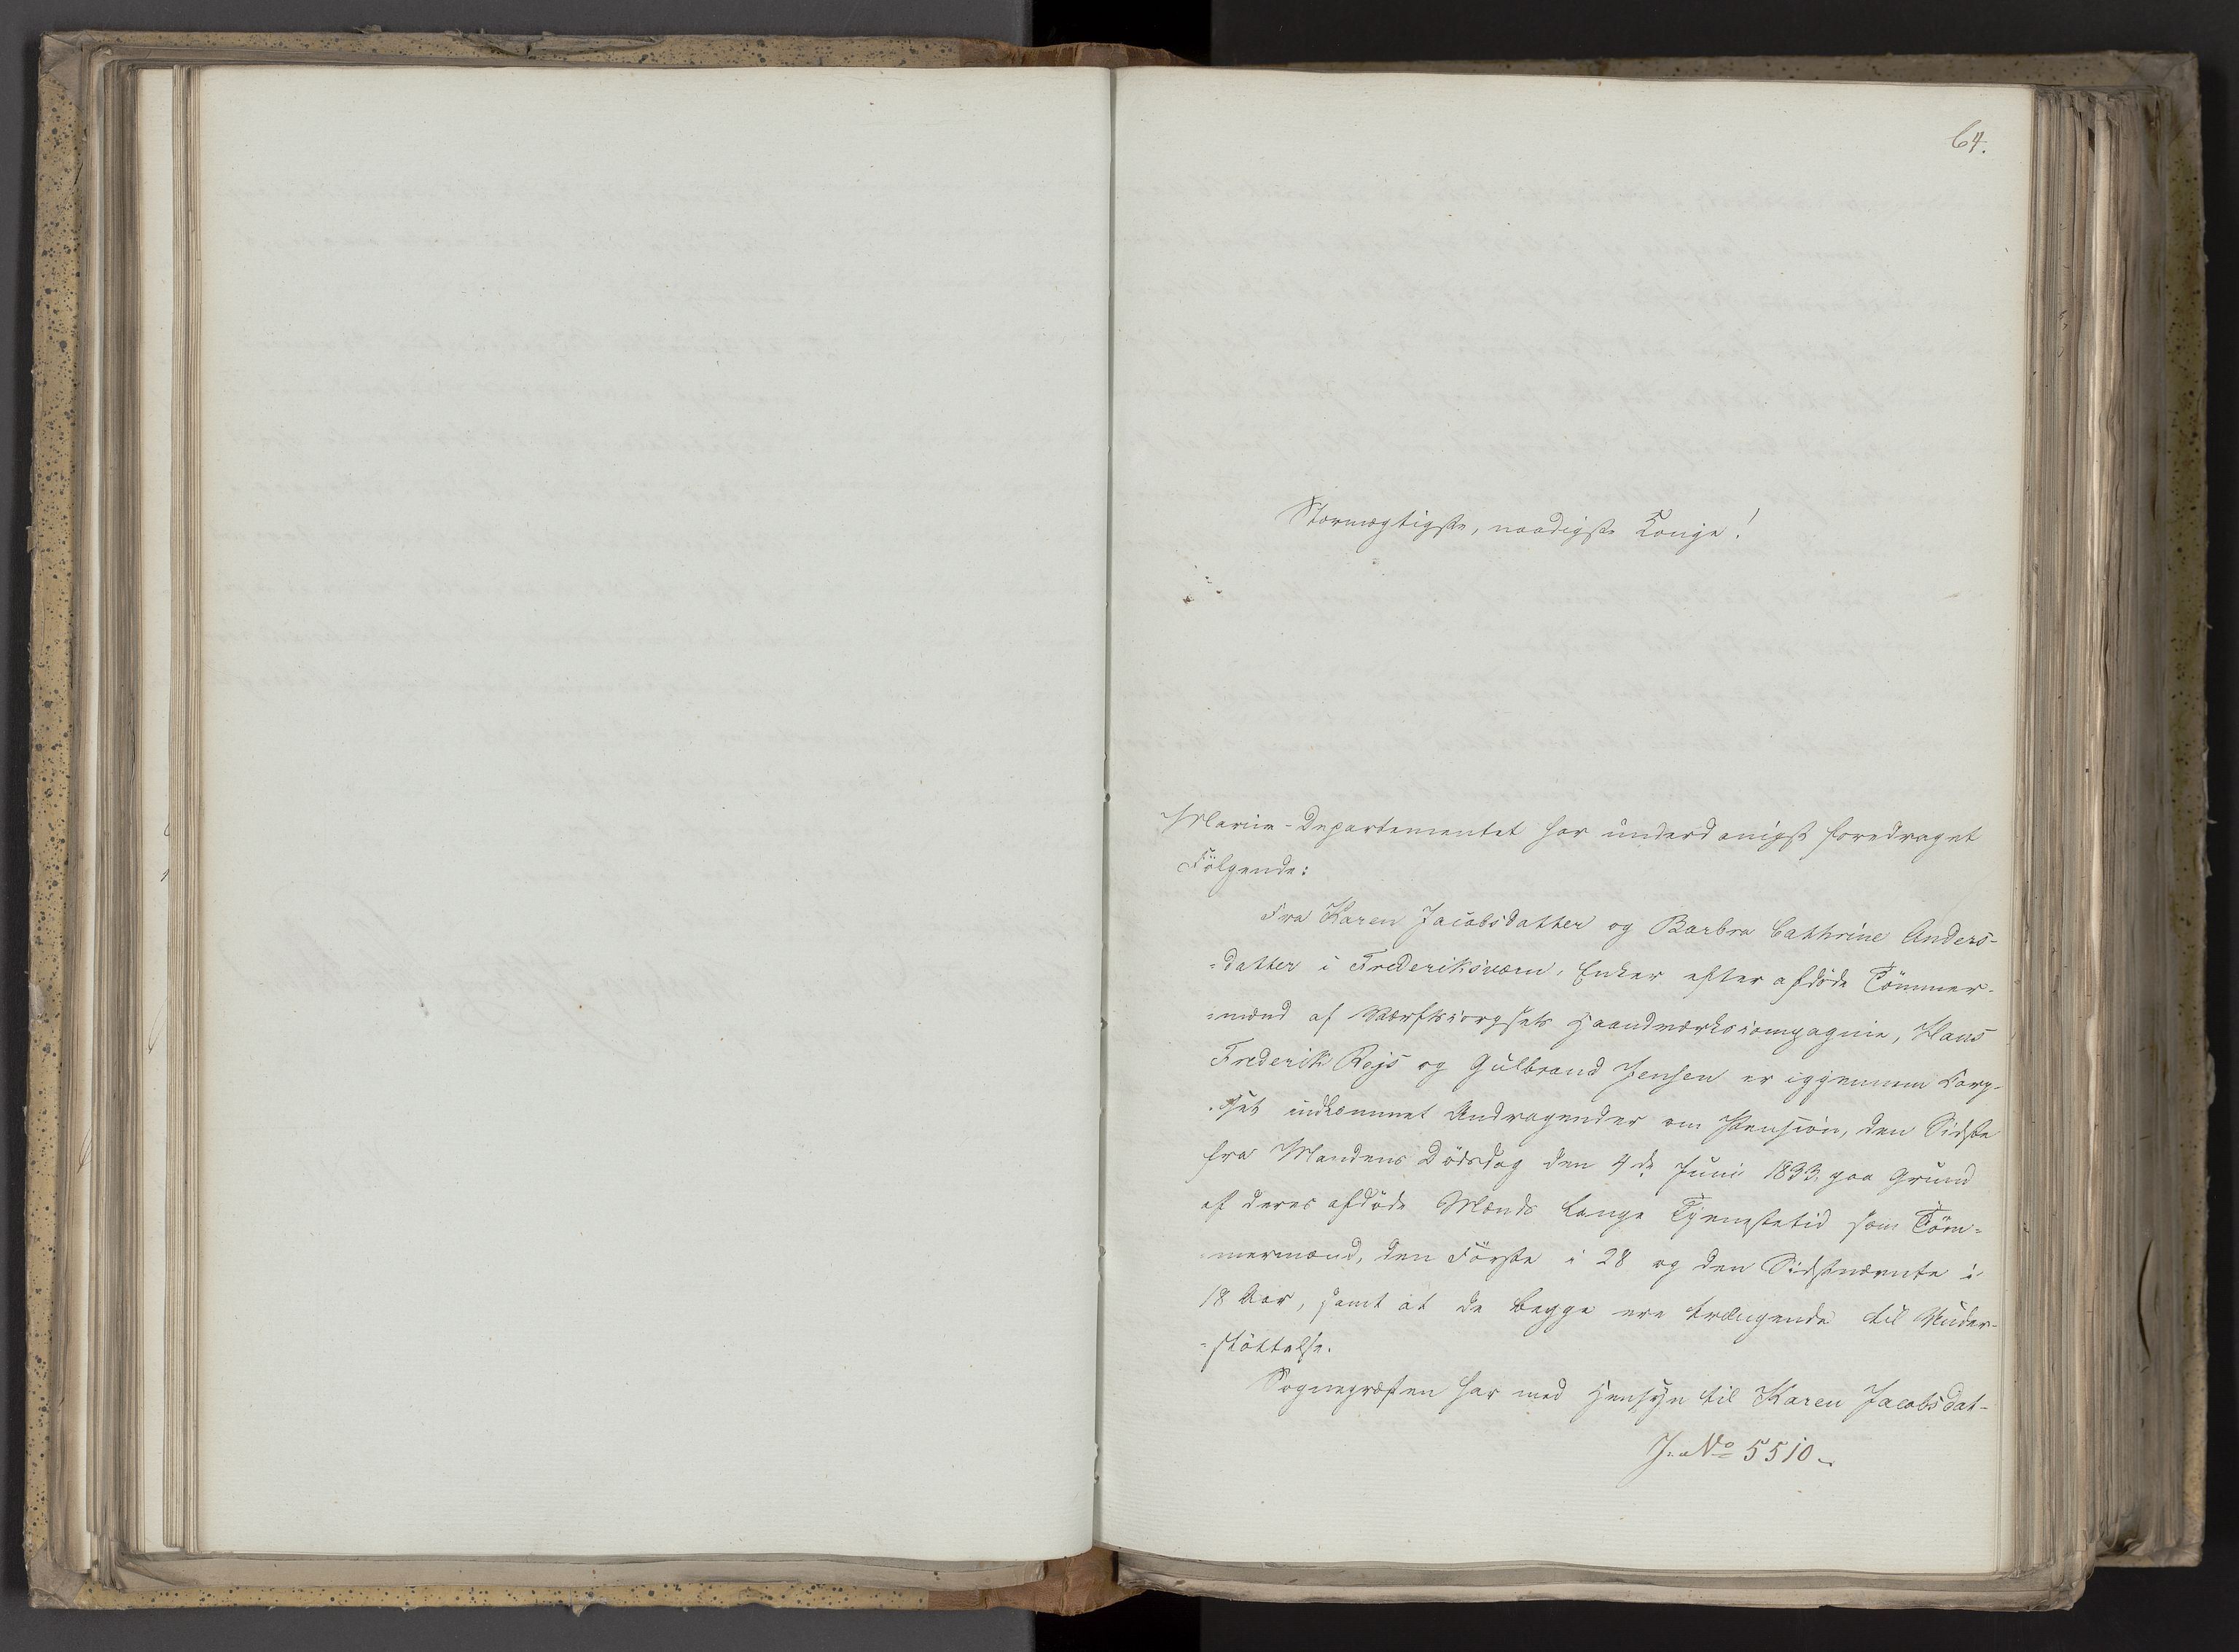 64.
Stormægtigste, naadigste Konge!
Marine-Departementet har underdanigst foredraget
Følgende:
Fra Karen Jacobsdatter og Barbra Cathrine Anders-
-datter i Frederiksværn, Enker efter afdøde Tömmer-
-mænd af Værftscorpsets Haandværkscompagnie, Hans
Frederik Rejs og Gulbrand Jensen er igjennem Corp-
-set indkommet Andragender om Pension, den Sidste
fra Mandens Dödsdag den 4de Juni 1833, paa Grund
af deres afdöde Mænds lange Tjenestetid som Töm-
mermænd, den Förste i 28 og den Sidstnævnte i
18 Aar, samt at de begge ere trængende til Under-
-stöttelse.
Sognepræsten har med Hensyn til Karen Jacobsdat-
J. No 5510